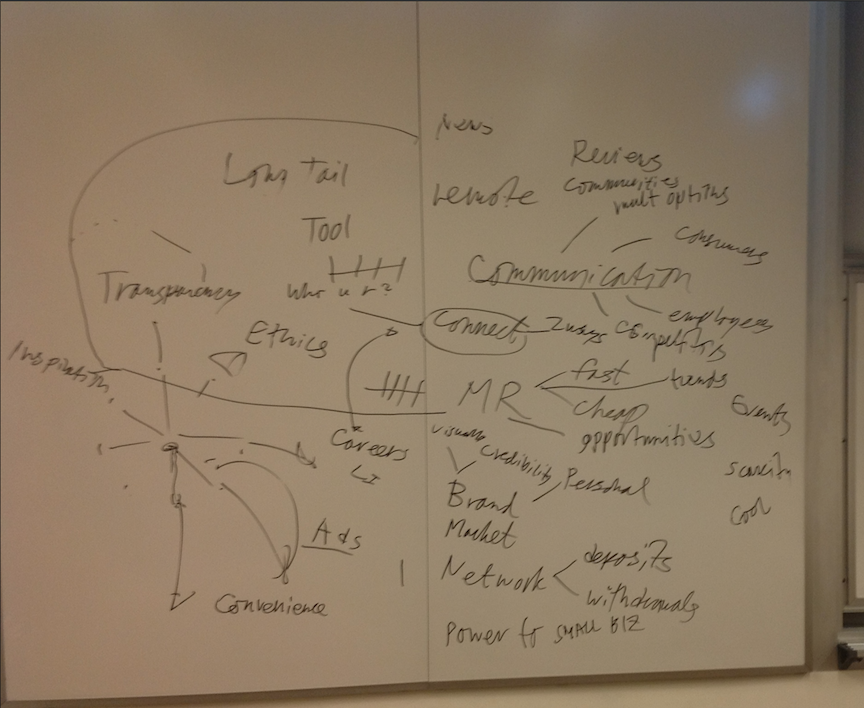 News
Long Tail
Reviews
remote
communities
mult options
Tool
consumers
Communication
Transparency
who u r?
employees
Connect
2ways
competitors
Ethics
Inspiration
fast
trends
MR
cheap
Events
opportunities
Careers
LI
visual
credibility
Personal
scarcity
Brand
cool
Market
Ads
deposits
Network
withdrawals
Convenience
Power to SMALL BIZ